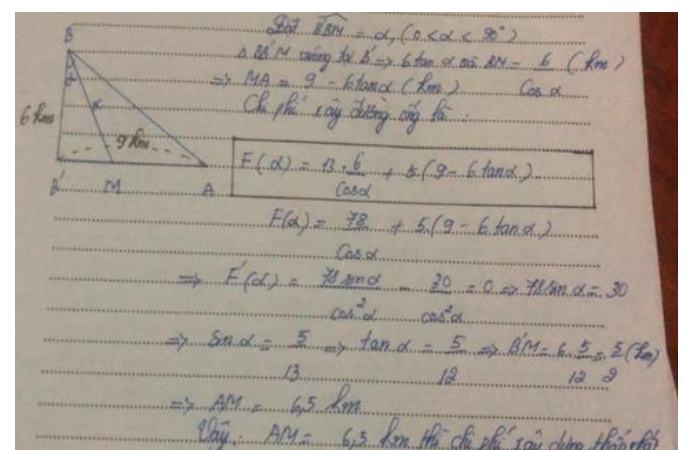 Đặt B'BM = α, (0 < α < 90°)
Δ BB'M vuông tại B' => 6 tan α và BM = 6/Cos α (km)
=> MA = 9 - 6tanα (km)
Chi phí xây đường ống là :
B
α
x
6 km
9 km
B' M A
F(α) = 13 . 6/Cosα + 5.(9 - 6 tanα)
F(α) = 78/Cosα + 5.(9 - 6.tanα)
=> F'(α) = 78 sinα/cos²α - 30/cos²α = 0 => 78 sin α = 30
=> Sin α = 5/13 => tan α = 5/12 => B'M = 6.5/12 = 5/2 (km)
=> AM = 6,5 km
Vậy: AM = 6,5 km thì chi phí xây dựng thấp nhất